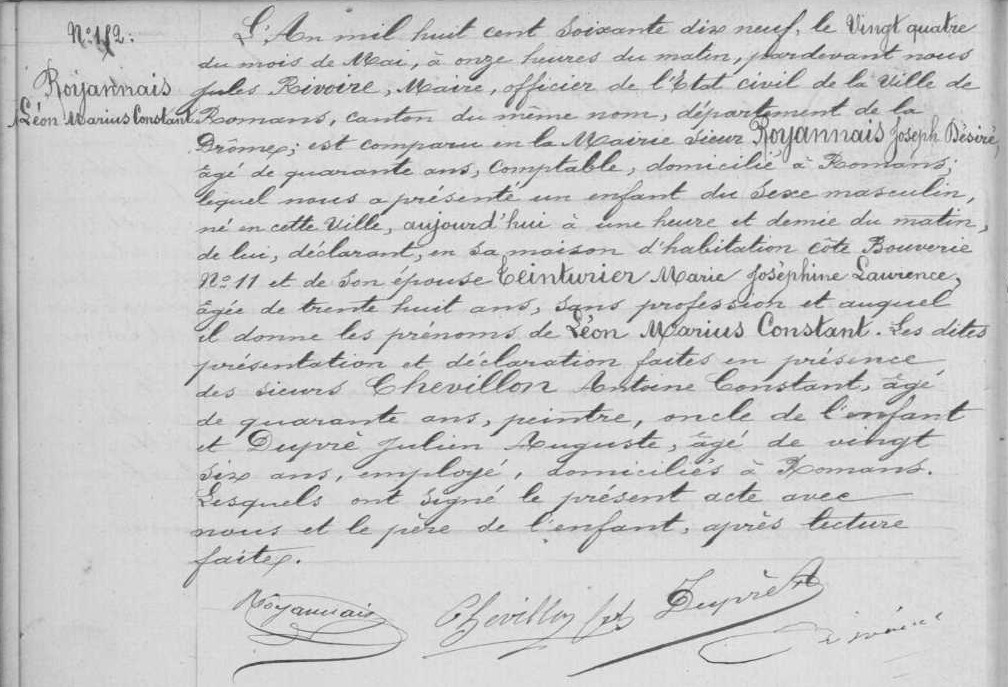 N° 112.
Royannais
Léon Marius Constant
L'An mil huit cent soixante dix neuf, le Vingt quatre
du mois de Mai, à onze heures du matin, pardevant nous
Jules Rivoire, Maire, officier de l'Etat civil de la Ville de
Romans, canton du même nom, département de la
Drôme; est comparu en la Mairie sieur Royannais Joseph Désiré,
âgé de quarante ans, comptable, domicilié à Romans;
lequel nous a présenté un enfant du sexe masculin,
né en cette Ville, aujourd'hui à une heure et demie du matin,
de lui, déclarant, en sa maison d'habitation côte Bouverie
N° 11 et de son épouse Teinturier Marie Joséphine Laurence,
âgée de trente huit ans, sans profession et auquel
il donne les prénoms de Léon Marius Constant. Les dites
présentation et déclaration faites en présence
des sieurs Chevillon Antoine Constant, âgé
de quarante ans, peintre, oncle de l'enfant
et Dupré Julien Auguste, âgé de vingt
six ans, employé, domiciliés à Romans.
Lesquels ont signé le présent acte avec
nous et le père de l'enfant, après lecture
faite.
Royannais Chevillon Dupré